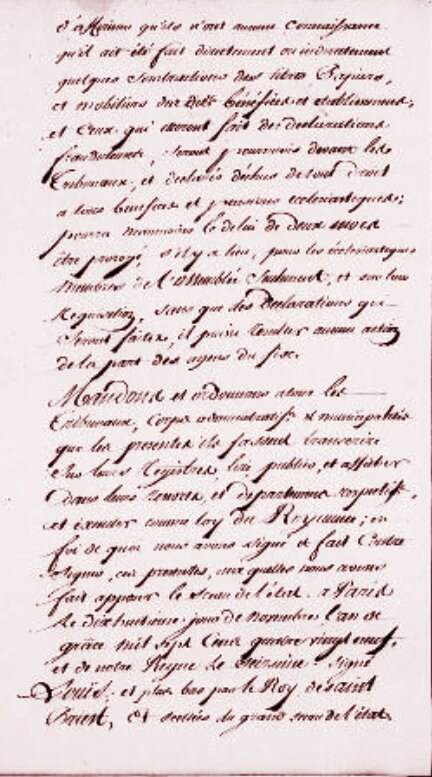 d'affirmer qu'ils n'ont aucune connaissance
qu'il ait été fait directement ou indirectement
quelques soustractions des titres Papiers,
et mobiliers des dits bénéfices et etablissements;
et Ceux qui auront fait des declarations
frauduleuses, seront poursuivis devant les
Tribunaux, et declarés déchus de tout droit
a tous benefices et pensions ecclesiastiques;
pourra neanmoins le délai de deux mois
être prorogé, s'il y a lieu, pour les écclesiastiques
membres de l'assemblée Nationale, et sur leur
Requisition, sans que des declarations qui
Seront faites, il puisse résulter aucune action
de la part des agens du fisc.
Mandons et ordonnons a tous les
Tribunaux, Corps administratifs et municipalités
que les presentes ils fassent transcrire
sur leurs Registres, lire publier, et afficher
dans leurs ressorts, et departemens respectifs,
et éxecuter comme loy du Royaume; en
foi de quoi nous avons signé et fait Contre
signer, ces presentes, aux quelles nous avons
fait apposer le sceau de l'état. a Paris
le dixhuitieme jour de novembre l'an de
grâce mil sept Cens quatre vingt neuf,
et de notre Regne le seizieme. signé
Louis, et plus bas par le Roy, de saint
Priest, et scellées du grand sceau de l'état.